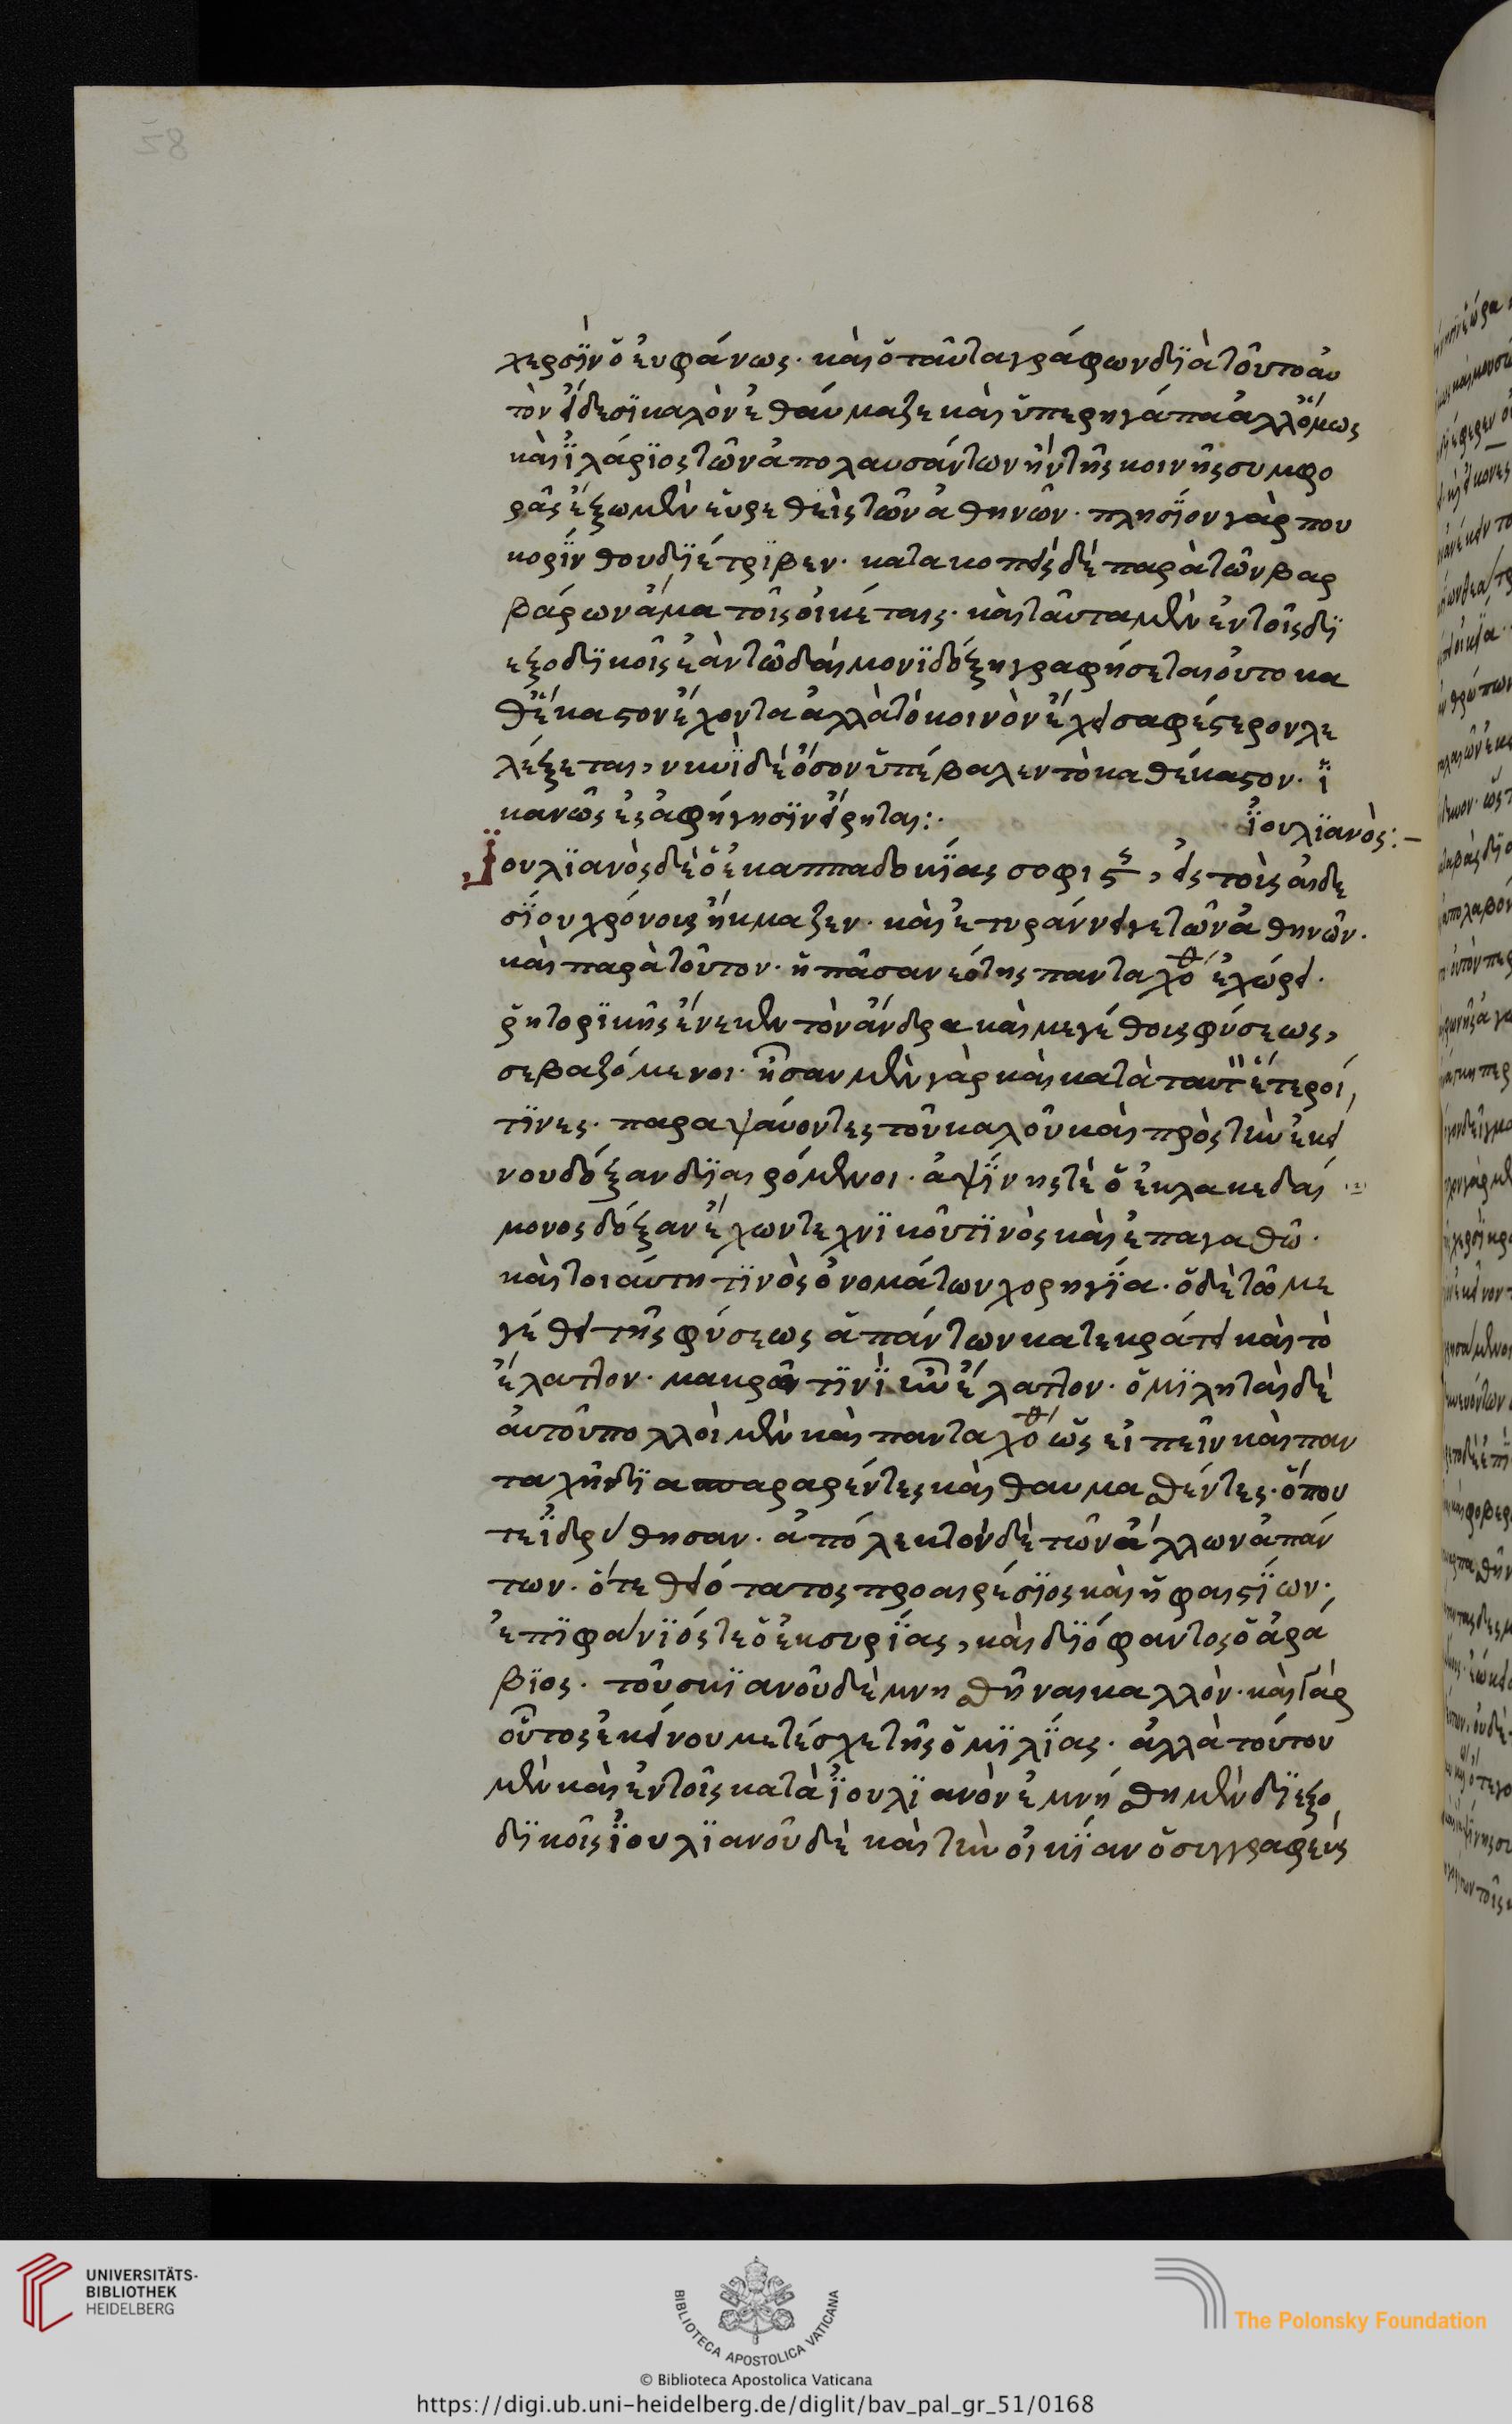 χερσὶν ὁ εὐφάνως. καὶ ὁ ταῦτα γράφων διὰ τοῦτο αὐ
τὸν εἴδεσι καλὸν ἐθαύμαζε καὶ ὑπερηγάπα ἀλλ' ὅμως
καὶ ἱλάριος τῶν ἀπολαυσάντων ἦν τῆς κοινῆς συμφο
ρᾶς ἔξω μὲν εὑρεθεὶς τῶν ἀθηνῶν. πλησίον γάρ που
κορίνθου διέτριβεν. κατακοπεὶς δὲ παρὰ τῶν βαρ
βάρων ἅμα τοῖς οἰκέταις. καὶ ταῦτα μὲν ἐν τοῖς δι
εξοδικοῖς ἐὰν τῷ δαίμονι δόξῃ γραφήσεται οὐ το κα
θ' ἕκαστον ἔχοντα ἀλλὰ τὸ κοινὸν ἐκεῖ σαφέστερον λε
λέξεται, νυνὶ δὲ ὅσον ὑπέβαλεν τὸ καθέκαστον. ἱ
κανῶς ἐς ἀφήγησιν εἴρηται:·
ἰουλιανός:–
Ἰουλιανὸς δὲ ὁ ἐκ καππαδοκίας σοφιστς, εἰς τοὺς αἰδε
σίου χρόνους ἤκμαζεν. καὶ ἐτυράννει γε τῶν ἀθηνῶν.
καὶ παρὰ τοῦτον. ἡ πᾶσα νεότης πανταχόθ ἐχώρει.
ῥητορικῆς ἕνεκεν τὸν ἄνδρα καὶ μεγέθους φύσεως,
σεβαζόμενοι. ἦσαν μὲν γὰρ καὶ κατὰ ταυτ ἕτεροί
τινες. παραψαύοντες τοῦ καλοῦ καὶ πρὸς τὴν ἐκεί
νου δόξαν διαιρόμενοι. ἀψίνης τὲ ὁ ἐκ λακεδαί
μονος δόξαν ἔχων τεχνικοῦ τινὸς καὶ ἐπαγαθῶ.
καὶ τοιαύτη τινὸς ὀνομάτων χορηγία. ὁ δὲ τῷ με
γέθει τῆς φύσεως ἁπάντων κατεκράτει καὶ τὸ
ἔλαττον. μακρῶ τινὶ ἦν ἔλαττον. ὁμιληταὶ δὲ
αὐτοῦ πολλοὶ μὲν καὶ πανταχόθ ὡς εἰπεῖν καὶ παν
ταχῆ διασπαρέντες καὶ θαυμασθέντες. ὅπου
τε ἱδρύθησαν. ἀπόλεκτον δὲ τῶν ἄλλων ἁπάν
των. ὅτε θειότατος προαιρέσιος καὶ ἡφαιστίων.
ἐπιφάνιός τε ὁ ἐκ συρίας, καὶ διόφαντος ὁ ἀρά
βιος. τουσκιανοῦ δὲ μνησθῆναι καλλὸν. καὶ γὰρ
οὗτος ἐκείνου μετέσχε τῆς ὁμιλίας. ἀλλὰ τούτου
μὲν καὶ ἐν τοῖς κατὰ ἰουλιανὸν ἐμνήσθημεν διεξο
δικοῖς ἰουλιανοῦ δὲ καὶ τὴν οἰκίαν ὁ συγγραφεὺς
UNIVERSITÄTS-
BIBLIOTHEK
HEIDELBERG
BIBLIOTECA APOSTOLICA VATICANA
The Polonsky Foundation
© Biblioteca Apostolica Vaticana
https://digi.ub.uni-heidelberg.de/diglit/bav_pal_gr_51/0168